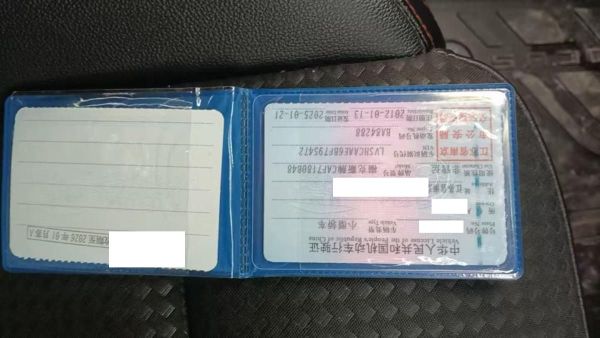 中华人民共和国机动车行驶证
Vehicle License of the People's Republic of China
号牌号码 车辆类型 小型轿车
Plate No. Vehicle Type
所 人
Owner
住 江苏省南
Address
使用性质 非营运 品牌型号 福克斯牌CAF7180B48
Use Character Model
江苏省南京 车辆识别代号 LVSHCAAE6BF795472
VIN
市公安局 发动机号码 BA84288
Engine No.
注册日期 2012-01-13 发证日期 2025-01-21
Register Date Issue Date
效期至2026年01月苏A